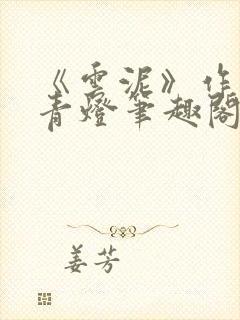 《雲泥》作
青燈筆趣閣
姜芳